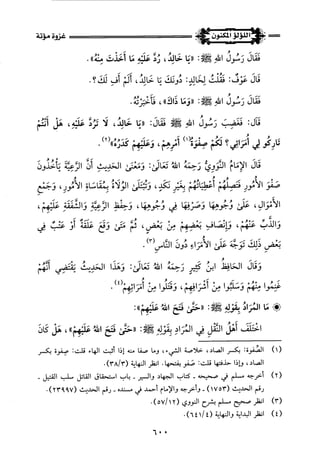 اللؤلؤ المكنون
غزوة مؤتة
فَقَالَ رَسُولُ اللهِ ﷺ: «يَا خَالِدُ، رُدَّ عَلَيْهِ مَا أَخَذْتَ مِنْهُ».
قَالَ عَوْفٌ: فَقُلْتُ لِخَالِدٍ: دُونَكَ يَا خَالِدُ، أَلَمْ أَفِ لَكَ؟.
فَقَالَ رَسُولُ اللهِ ﷺ: «وَمَا ذَاكَ»، فَأَخْبَرْتُهُ.
قَالَ: فَغَضِبَ رَسُولُ اللهِ ﷺ فَقَالَ: «يَا خَالِدُ، لَا تَرُدَّ عَلَيْهِ، هَلْ أَنْتُمْ
تَارِكُو لِي أُمَرَائِي؟ لَكُمْ صِفْوَةُ(١) أَمْرِهِمْ، وَعَلَيْهِمْ كَدَرُهُ»(٢).
قَالَ الْإِمَامُ النَّوَوِيُّ رَحِمَهُ اللهُ تَعَالَى: وَمَعْنَى الْحَدِيثِ أَنَّ الرَّعِيَّةَ يَأْخُذُونَ
صَفْوَ الْأُمُورِ فَتَصِلُهُمْ أُعْطِيَاتُهُمْ بِغَيْرِ نَكَدٍ، وَتُبْتَلَى الْوُلَاةُ بِمُقَاسَاةِ الْأُمُورِ، وَجَمْعِ
الْأَمْوَالِ، عَلَى وُجُوهِهَا وَصَرْفِهَا فِي وُجُوهِهَا، وَحِفْظِ الرَّعِيَّةِ وَالشَّفَقَةِ عَلَيْهِمْ،
وَالذَّبِّ عَنْهُمْ، وَإِنْصَافِ بَعْضِهِمْ مِنْ بَعْضٍ، ثُمَّ مَتَى وَقَعَ عَلَقَةٌ أَوْ عَتْبٌ فِي
بَعْضِ ذَلِكَ تَوَجَّهَ عَلَى الْأُمَرَاءِ دُونَ النَّاسِ(٣).
وَقَالَ الْحَافِظُ ابْنُ كَثِيرٍ رَحِمَهُ اللهُ تَعَالَى: وَهَذَا الْحَدِيثُ يَقْتَضِي أَنَّهُمْ
غَنِمُوا مِنْهُمْ وَسَلَبُوا مِنْ أَشْرَافِهِمْ، وَقَتَلُوا مِنْ أُمَرَائِهِمْ(٤).
◉ مَا الْمُرَادُ بِقَوْلِهِ ﷺ: «حَتَّى فَتَحَ اللهُ عَلَيْهِمْ»:
اخْتَلَفَ أَهْلُ النَّقْلِ فِي الْمُرَادِ بِقَوْلِهِ ﷺ: «حَتَّى فَتَحَ اللهُ عَلَيْهِمْ»، هَلْ كَانَ
(١) الصِّفْوة: بكسر الصاد، خلاصة الشيء، وما صفا منه إذا أثبت الهاء قلت: صِفوة بكسر
الصاد، وإذا حذفتها قلت: صَفو بفتحها. انظر النهاية (٣٨/٣).
(٢) أخرجه مسلم في صحيحه - كتاب الجهاد والسير - باب استحقاق القاتل سلب القتيل -
رقم الحديث (١٧٥٣) - وأخرجه والإمام أحمد في مسنده - رقم الحديث (٢٣٩٩٧).
(٣) انظر صحيح مسلم بشرح النووي (٥٧/١٢).
(٤) انظر البداية والنهاية (٦٤١/٤).
٦٠٠